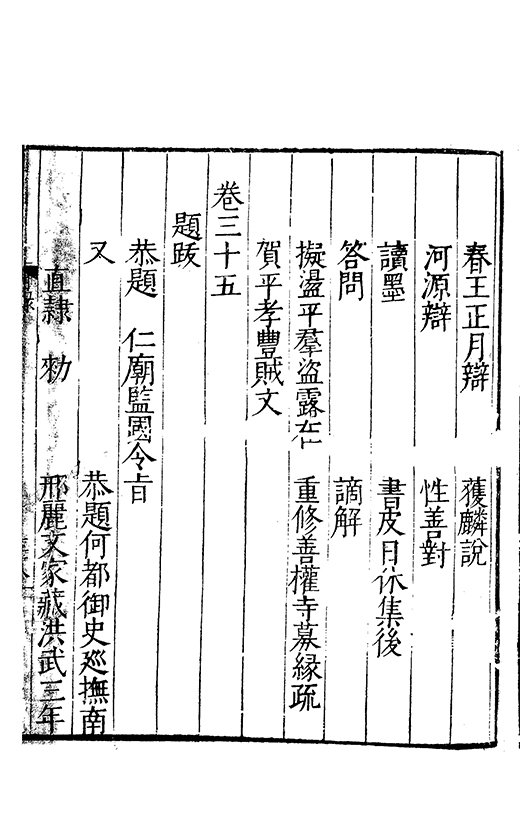 春王正月辯　獲麟說
河源辯　性善對
讀墨　書皮日休集後
答問　謫解
擬盪平羣盜露布　重修善權寺募緣疏
賀平孝豐賊文
卷三十五
題跋
恭題　仁廟監國令旨
又　恭題何都御史廵撫南
直隸　勑　邢麗文家藏洪武三年